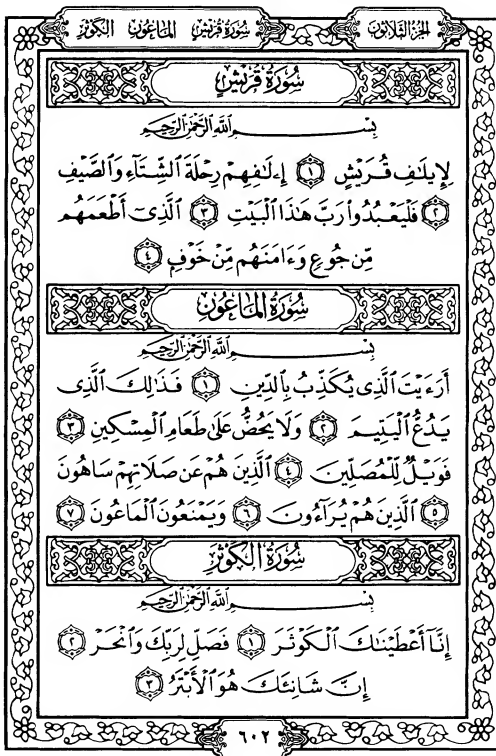 الجزء الثلاثون
سورة قريش الماعون الكوثر
سُورَةُ قُرَيْشٍ
بِسْمِ ٱللَّهِ ٱلرَّحْمَٰنِ ٱلرَّحِيمِ
لِإِيلَٰفِ قُرَيْشٍ ١ إِۦلَٰفِهِمْ رِحْلَةَ ٱلشِّتَآءِ وَٱلصَّيْفِ
٢ فَلْيَعْبُدُوا۟ رَبَّ هَٰذَا ٱلْبَيْتِ ٣ ٱلَّذِىٓ أَطْعَمَهُم
مِّن جُوعٍ وَءَامَنَهُم مِّنْ خَوْفٍۭ ٤
سُورَةُ المَاعُونَ
بِسْمِ ٱللَّهِ ٱلرَّحْمَٰنِ ٱلرَّحِيمِ
أَرَءَيْتَ ٱلَّذِى يُكَذِّبُ بِٱلدِّينِ ١ فَذَٰلِكَ ٱلَّذِى
يَدُعُّ ٱلْيَتِيمَ ٢ وَلَا يَحُضُّ عَلَىٰ طَعَامِ ٱلْمِسْكِينِ ٣
فَوَيْلٌ لِّلْمُصَلِّينَ ٤ ٱلَّذِينَ هُمْ عَن صَلَاتِهِمْ سَاهُونَ
٥ ٱلَّذِينَ هُمْ يُرَآءُونَ ٦ وَيَمْنَعُونَ ٱلْمَاعُونَ ٧
سُورَةُ الكَوْثَرِ
بِسْمِ ٱللَّهِ ٱلرَّحْمَٰنِ ٱلرَّحِيمِ
إِنَّآ أَعْطَيْنَٰكَ ٱلْكَوْثَرَ ١ فَصَلِّ لِرَبِّكَ وَٱنْحَرْ ٢
إِنَّ شَانِئَكَ هُوَ ٱلْأَبْتَرُ ٣
٦٠٢